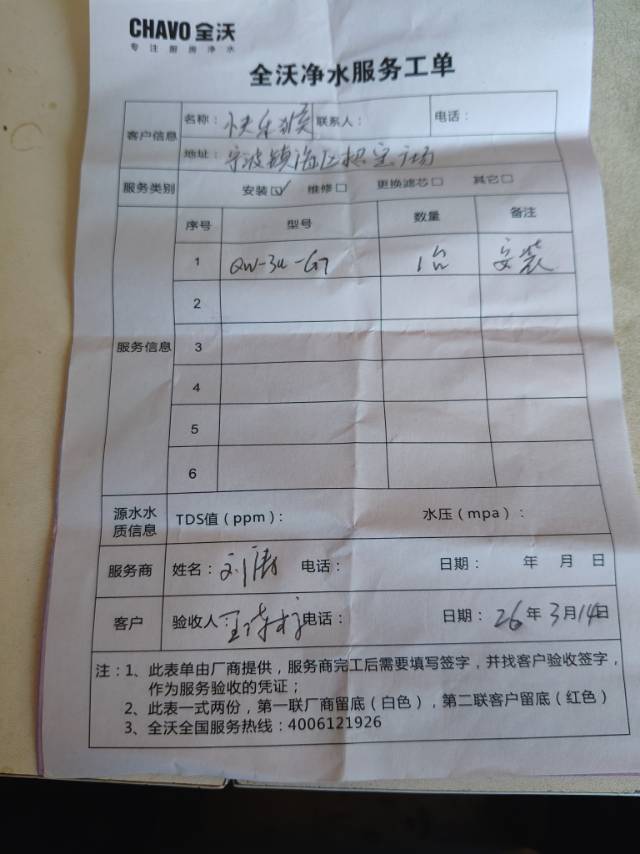 CHAVO 全沃
专注厨房净水
全沃净水服务工单
客户信息 名称：快乐猴 联系人： 电话：
地址：宁波镇海区恒宝广场
服务类别 安装☑ 维修□ 更换滤芯□ 其它□
服务信息 序号 型号 数量 备注
1 QW-3u-G7 1台 安装
2
3
4
5
6
源水水质信息 TDS值（ppm）： 水压（mpa）：
服务商 姓名：刘涛 电话： 日期： 年 月 日
客户 验收人： 电话： 日期：26年3月14日
注：1、此表单由厂商提供，服务商完工后需要填写签字，并找客户验收签字，
作为服务验收的凭证；
2、此表一式两份，第一联厂商留底（白色），第二联客户留底（红色）
3、全沃全国服务热线：4006121926